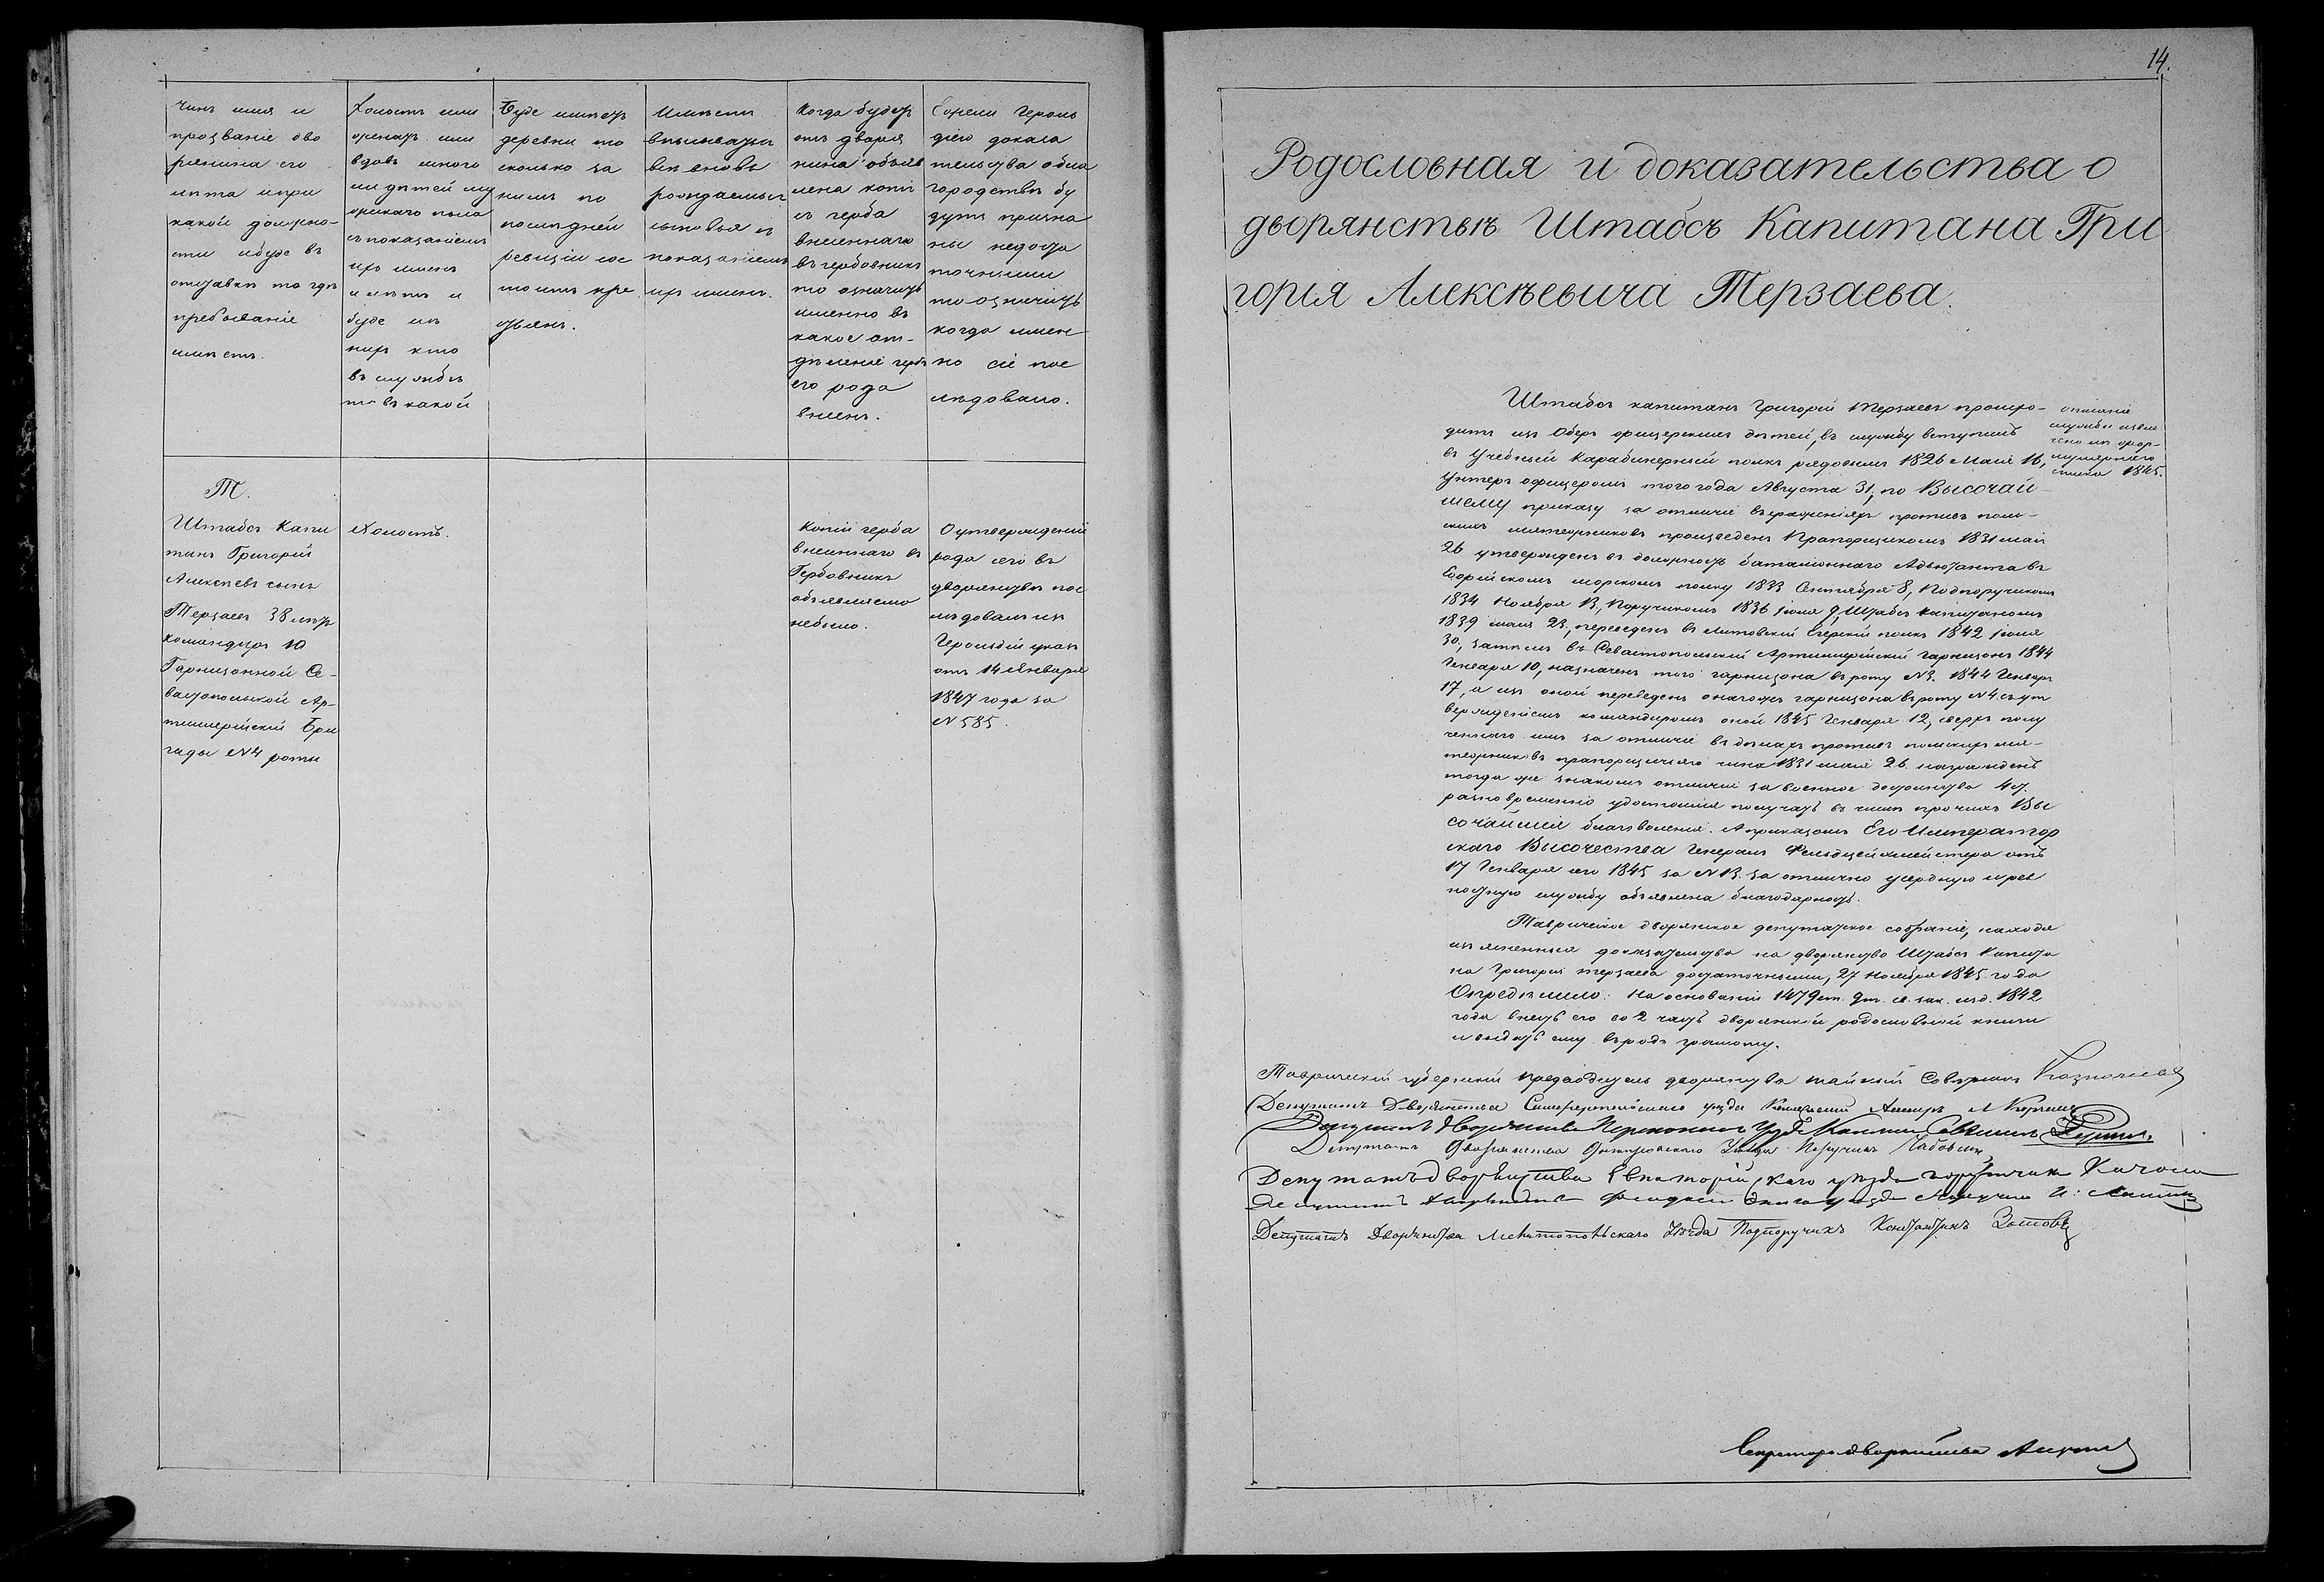 Чинъ имя и
прозваніе дво
рянина его
лѣта и при
какой должно-
сти и буде въ
отставкѣ то гдѣ
пребываніе
имѣетъ.
Холостъ или
женатъ или
вдовъ много
ли дѣтей му
жескаго пола
съ показаніемъ
ихъ именъ
и лѣтъ и
буде изъ
нихъ кто
въ службѣ
то въ какой
Буде имѣетъ
деревни то
сколько за
нимъ по
послѣдней
ревизіи сос
тоитъ кре
стьянъ.
Имѣетъ
вписывать
всѣ вновь
рождаемыя
сыновья съ
показаніемъ
ихъ именъ.
Когда будетъ
отъ дворя
нина объяв
лена копія
съ герба
внесеннаго
въ гербовникъ
то означить
именно въ
какое от-
дѣленіе гербъ
его рода
внесенъ.
Ежели Героль
діею доказа
тельства о бла
городствѣ бу
дутъ призна
ны недоста
точными
то означить
когда имен
но сіе пос
лѣдовало.
Т.
Штабсъ Капи
танъ Григорій
Алексѣевъ сынъ
Терзаевъ 38 лѣтъ
командиръ 10
Гарнизонной Се-
вастопольской Ар-
тиллерійской Бри
гады № 4 роты
Холостъ.
Копіи герба
внесеннаго въ
Гербовникъ
объявляемо
небыло.
О утвержденіи
рода его въ
дворянствѣ пос
лѣдовалъ изъ
Герольдіи указъ
отъ 14 Января
1847 года за
№ 585.
14.
Родословная и доказательства о
дворянствѣ Штабсъ Капитана Гри
горія Алексѣевича Терзаева.
Штабсъ капитанъ Григорій Терзаевъ происхо-
дитъ изъ Оберъ офицерскихъ дѣтей, въ службу вступилъ
въ Учебный Карабинерный полкъ рядовымъ 1826 Маія 16,
Унтеръ офицеромъ того года Августа 31, по Высочай-
шему приказу за отличіе въ сраженіяхъ противъ поль-
скихъ мятежниковъ произведенъ Прапорщикомъ 1831 маія
26 утвержденъ въ должность баталіоннаго Адьютанта въ
Софійскомъ морскомъ полку 1833 Сентября 8, Подпоручикомъ
1834 Ноября 13, Поручикомъ 1836 іюня 9, Штабсъ капитаномъ
1839 маія 23, переведенъ въ Литовскій Егерскій полкъ 1842 іюня
30, затѣмъ въ Севастопольскій Артиллерійскій гарнизонъ 1844
Генваря 10, назначенъ того гарнизона въ роту № 3. 1844 Генваря
17, а изъ оной переведенъ онагожъ гарнизона въ роту № 4. съ ут
вержденіемъ командиромъ оной 1845 Генваря 12, сверхъ полу
ченнаго имъ за отличіе въ дѣлахъ противъ польскихъ мя-
тежниковъ прапорщичьяго чина 1831 маія 26. награжденъ
тогда же знакомъ отличія за военное достоинство 4 ст.
разновременно удостоился получать въ числѣ прочихъ Вы
сочайшія благоволенія. А приказомъ Его Император
скаго Высочества Генералъ Фельдцейхмейстера отъ
17 Генваря его 1845 за № 13. за отлично усердную и рев
ностную службу объявлена благодарность.
описаніе
службы извле
чено изъ фор-
мулярнаго
списка 1845.
Таврическое дворянское депутатское собраніе, находя
изъясненныя доказательства на дворянство Штабсъ Капита
на Григорія Терзаева достаточными, 27 Ноября 1845 года
Опредѣлило: На основаніи 1479 ст. 9 т. св. зак. изд. 1842
года внесть его во 2 часть дворянской родословной книги
и выдать ему въ родъ грамоту.
Таврическій губернскій предводитель дворянства тайный Совѣтникъ Казначеевъ
Депутатъ Дворянства Симферопольскаго уѣзда
Депутатъ Дворянства Перекопскаго Уѣзда
Депутатъ Дворянства Днѣпровскаго Уѣзда Поручикъ
Депутатъ дворянства Евпаторійскаго уѣзда
Депутатъ Дворянства Феодосійскаго уѣзда Поручикъ
Депутатъ Дворянства Мелитопольскаго Уѣзда Подпоручикъ Константинъ Зотовъ
Секретарь дворянства